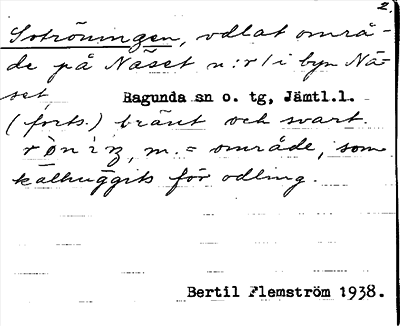 2.
Sotröningen, odlat områ-
de på Näset n:r 1 i byn Nä-
set, Ragunda sn o. tg, Jämtl.l.
(forts.) bränt och svart.
röniŋ, m. = område, som
kalhuggits för odling.
Bertil Flemström 1938.